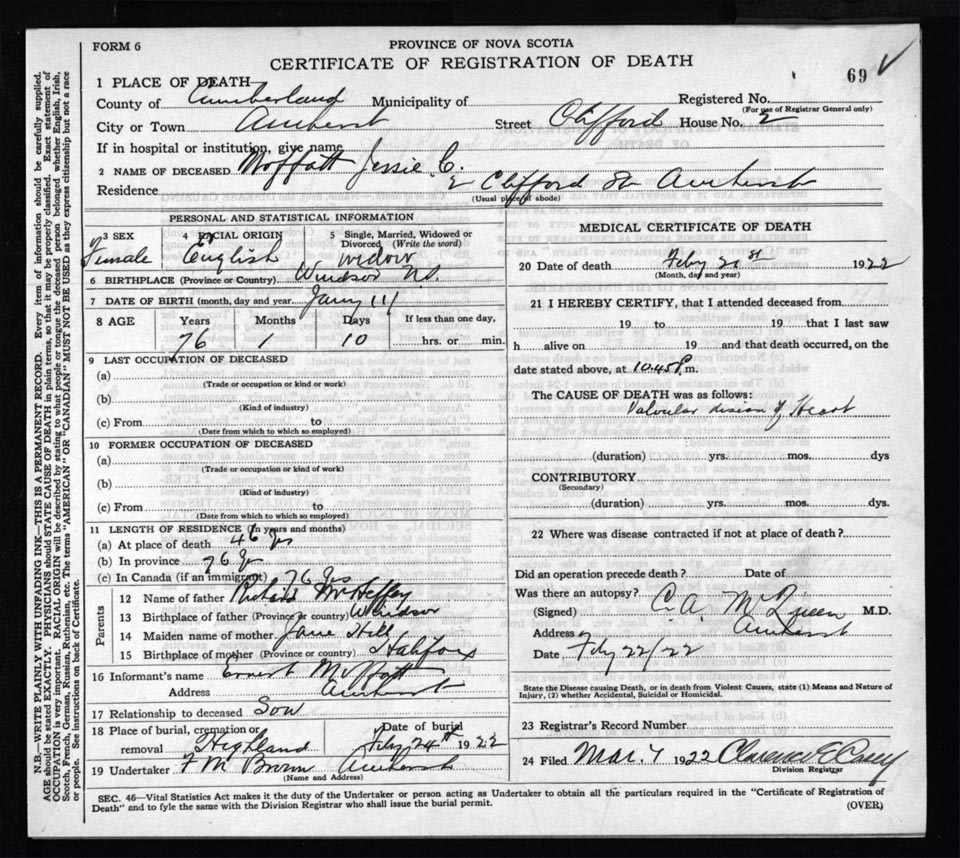 FORM 6
PROVINCE OF NOVA SCOTIA
CERTIFICATE OF REGISTRATION OF DEATH
69
1 PLACE OF DEATH
County of Cumberland Municipality of Registered No.
(For use of Registrar General only)
City or Town Amherst Street Clifford House No. 2
If in hospital or institution, give name
2 NAME OF DECEASED Moffatt Jessie C.
Residence 2 Clifford St Amherst
(Usual place of abode)
PERSONAL AND STATISTICAL INFORMATION
3 SEX Female
4 RACIAL ORIGIN English
5 Single, Married, Widowed or Divorced (Write the word) widow
6 BIRTHPLACE (Province or Country) Windsor N.S.
7 DATE OF BIRTH (month, day and year) Jany 11/
8 AGE Years Months Days If less than one day,
76 1 10 hrs. or min.
9 LAST OCCUPATION OF DECEASED
(a)
(Trade or occupation or kind of work)
(b)
(Kind of industry)
(c) From to
(Date from which to which so employed)
10 FORMER OCCUPATION OF DECEASED
(a)
(Trade or occupation or kind of work)
(b)
(Kind of industry)
(c) From to
(Date from which to which so employed)
11 LENGTH OF RESIDENCE (In years and months)
(a) At place of death 46 yrs
(b) In province 76 yrs
(c) In Canada (if an immigrant) 76 yrs
Parents
12 Name of father McHeffey
13 Birthplace of father (Province or country) Windsor
14 Maiden name of mother Jane Hill
15 Birthplace of mother (Province or country) Halifax
16 Informant's name Ernest Moffatt
Address Amherst
17 Relationship to deceased Son
18 Place of burial, cremation or removal Highland Date of burial Feby 24th 1922
19 Undertaker F M Brown Amherst
(Name and Address)
MEDICAL CERTIFICATE OF DEATH
20 Date of death Feby 21st 1922
(Month, day and year)
21 I HEREBY CERTIFY, that I attended deceased from
19 to 19 that I last saw
h alive on 19 and that death occurred, on the
date stated above, at 10.45 P m.
The CAUSE OF DEATH was as follows:
Valvular of Heart
(duration) yrs. mos. dys
CONTRIBUTORY
(Secondary)
(duration) yrs. mos. dys.
22 Where was disease contracted if not at place of death?
Did an operation precede death? Date of
Was there an autopsy?
(Signed) C.A. McQueen M.D.
Address Amherst
Date Feby 22/22
State the Disease causing Death, or in death from Violent Causes, state (1) Means and Nature of
Injury, (2) whether Accidental, Suicidal or Homicidal.
23 Registrar's Record Number
24 Filed Mar. 7 1922 Clarence E Casey
Division Registrar
SEC. 46—Vital Statistics Act makes it the duty of the Undertaker or person acting as Undertaker to obtain all the particulars required in the "Certificate of Registration of
Death" and to fyle the same with the Division Registrar who shall issue the burial permit.
(OVER)
N.B.—WRITE PLAINLY WITH UNFADING INK—THIS IS A PERMANENT RECORD. Every item of information should be carefully supplied.
AGE should be stated EXACTLY. PHYSICIANS should STATE CAUSE OF DEATH in plain terms, so that it may be properly classified. Exact statement of
OCCUPATION is very important. RACIAL ORIGIN will be described by stating to what people or tongue the deceased person belonged whether English, Irish,
Scotch, French, German, Russian, Ruthenian, etc. The terms "AMERICAN" OR "CANADIAN" MUST NOT BE USED as they express citizenship but not a race
or people. See instructions on back of Certificate.